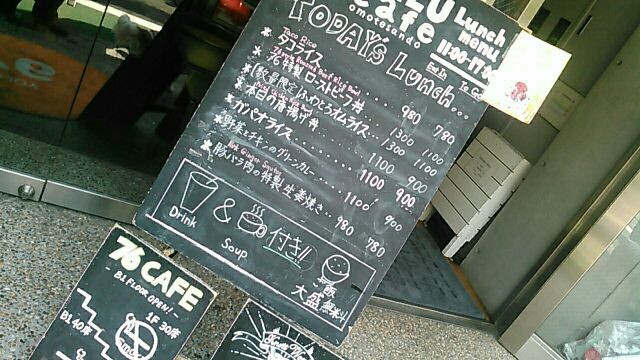 Cafe
omotesando
Lunch
menu
11:00-17:00
Eat In
To Go
TODAYS Lunch...
Taco Rice
* タコライス 980 780
* 76特製ローストビーフ丼 1300 1100
* (数量限定)ふわとろオムライス… 1300 1100
* 本日の唐揚げ丼 1100 900
* ガパオライス 1100 900
* 野菜とチキンのグリーンカレー 1100 900
Pork Ginger Saute
* 豚バラ肉の特製生姜焼き 980 780
Drink & Soup 付き!!
ご飯
大盛 無料!!
76 CAFE
B1 FLOOR OPEN!
1F 30席
B1 40席